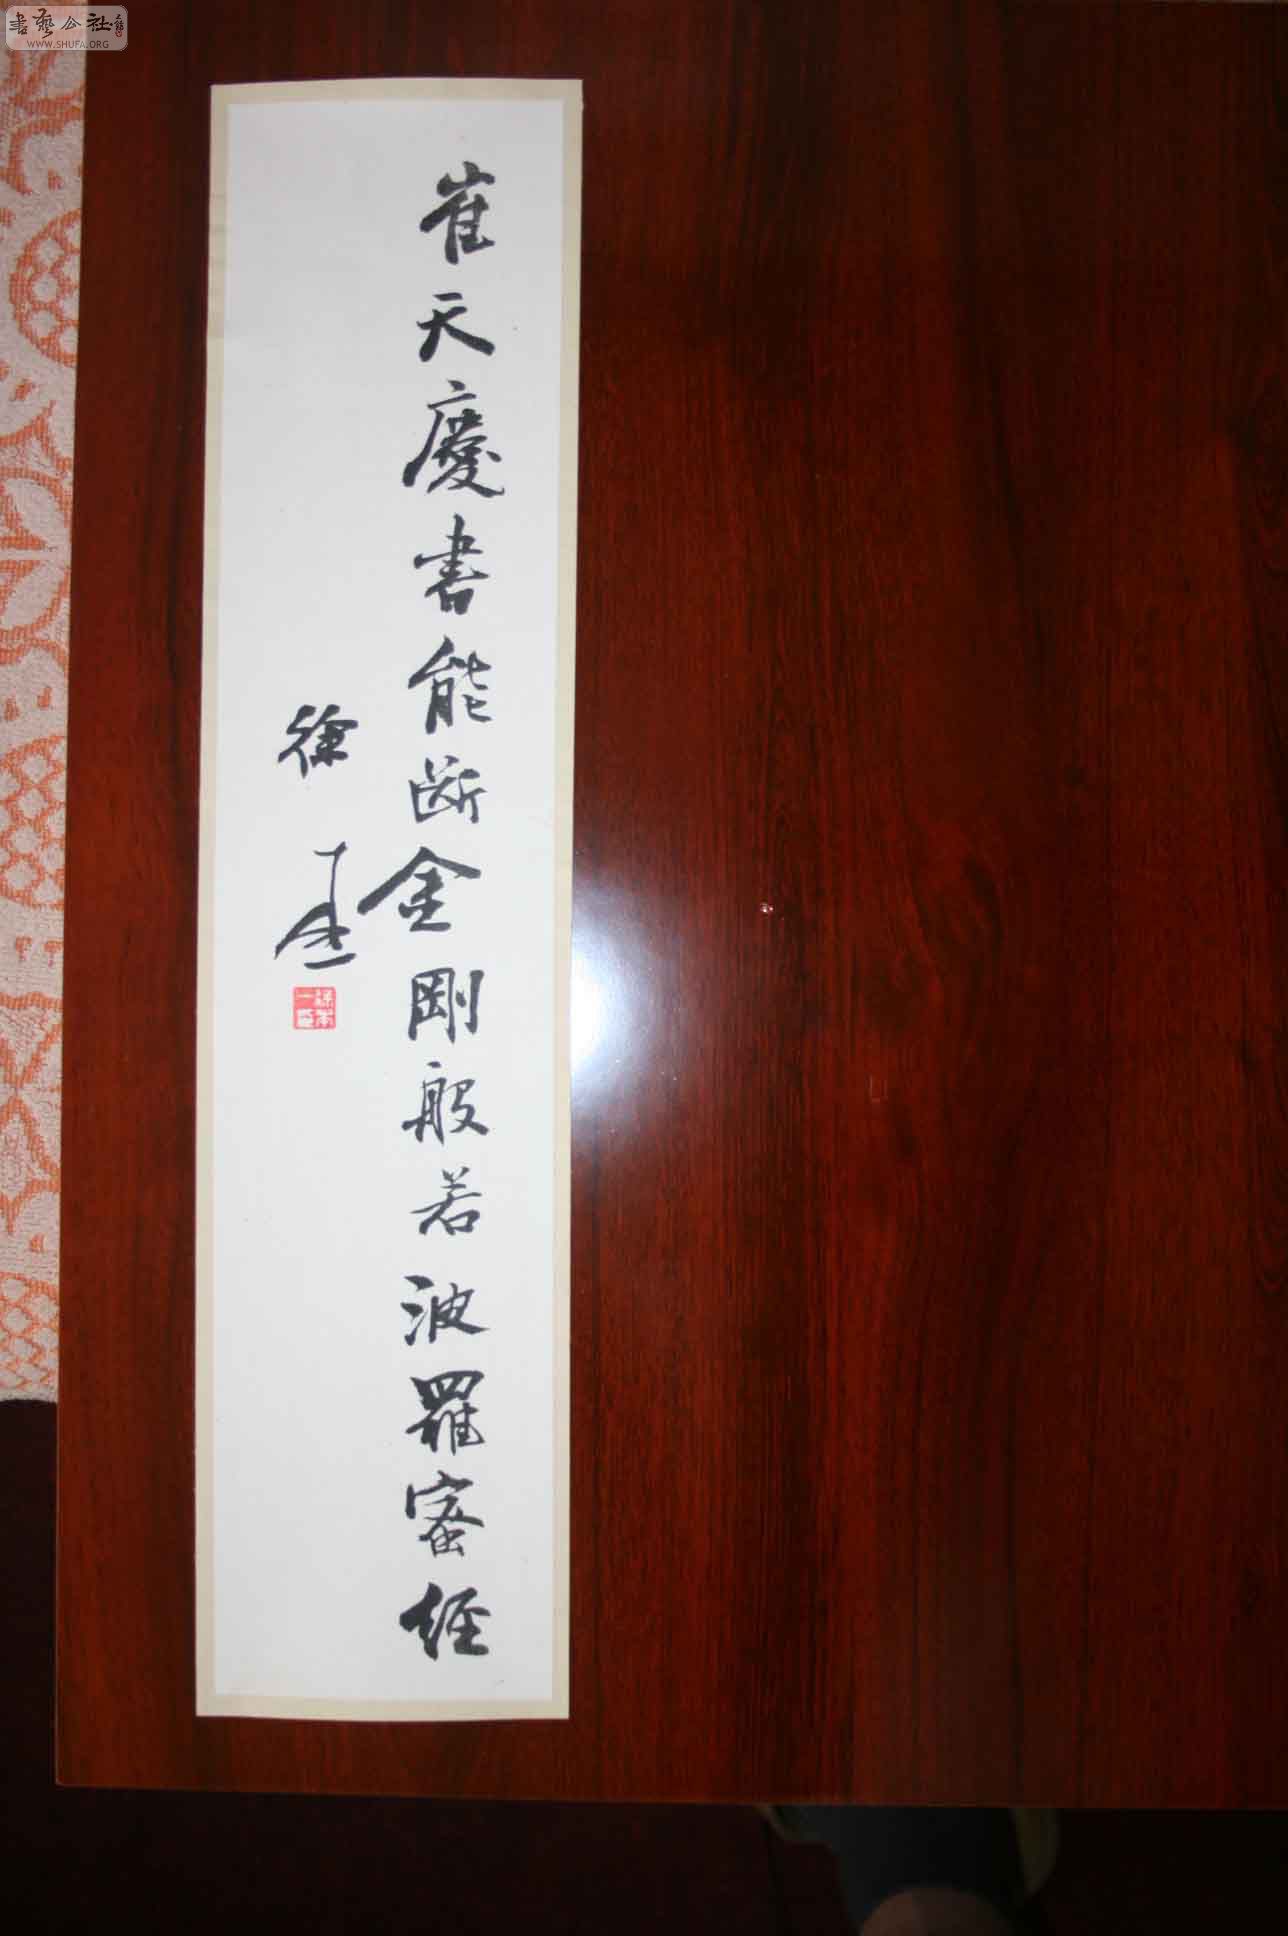 書藝公社
WWW.SHUFA.ORG
崔天慶書能斷金剛般若波羅密經
徐